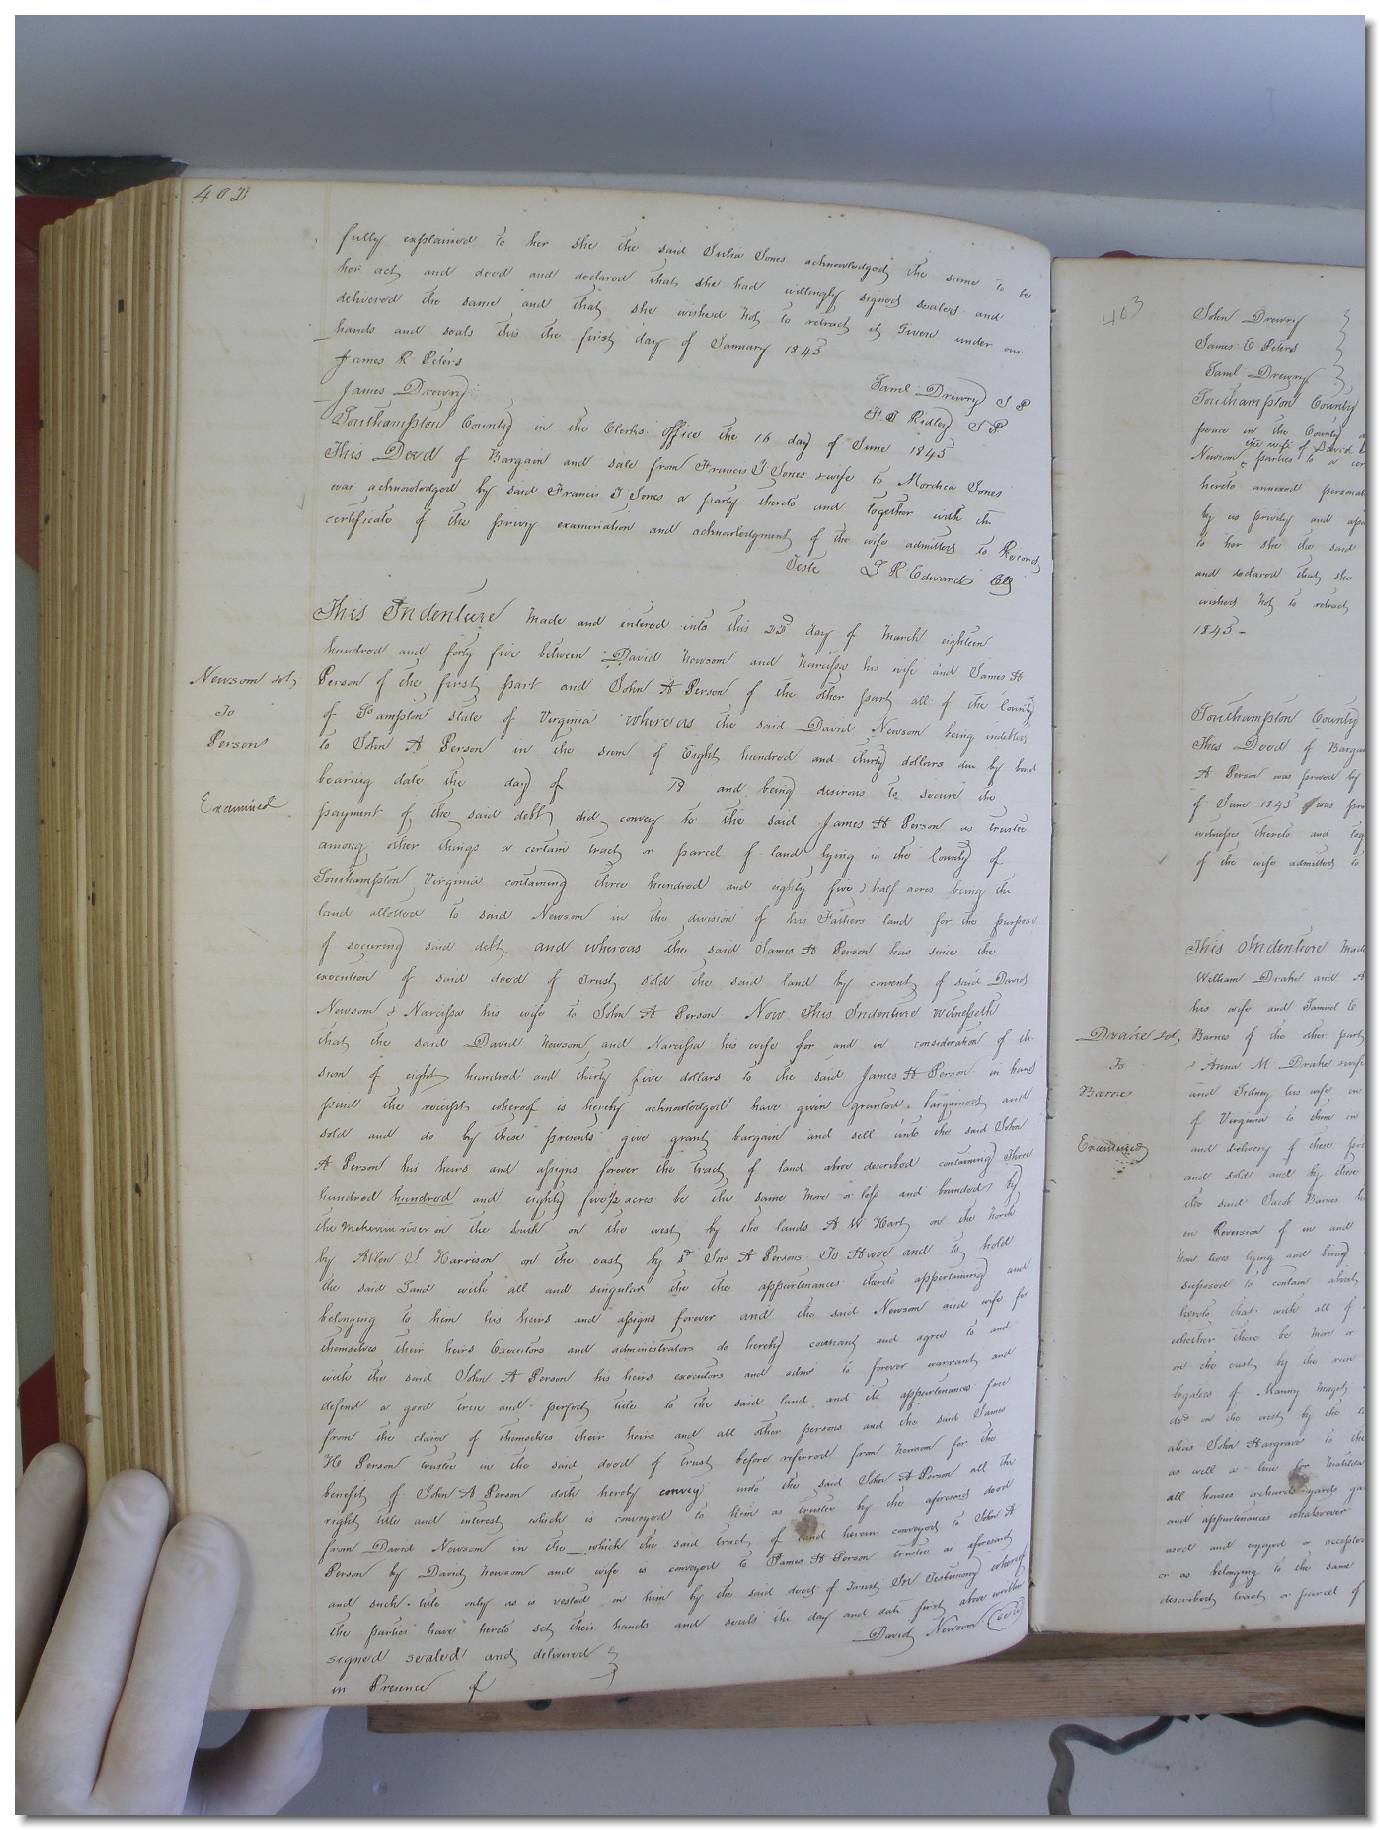 402
fully explained to her she the said Julia Jones acknowledged the same to be
her act and deed and declared that she had willingly signed sealed and
delivered the same and that she wished not to retract it Given under our
hands and seals this the first day of January 1845
James R Peters
James Drewry
Saml Drewry J P
Ridley J P
Southampton County in the Clerks office the 16 day of June 1845
This Deed of Bargain and sale from Francis T Jones & wife to Mordica Jones
was acknowledged by said Francis T Jones a party thereto and together with the
certificate of the privy examination and acknowledgment of the wife admitted to Record
Teste L R Edwards Clk
Newsom &c
To
Person
Examined
This Indenture made and entered into this day of March eighteen
hundred and forty five between David Newsom and Narcissa his wife and James H
Person of the first part and John A Person of the other part all of the County
of So ampton State of Virginia whereas the said David Newsom being indebted
to John A Person in the sum of Eight hundred and thirty dollars due by bond
bearing date the day of 18 and being desirous to secure the
payment of the said debt did convey to the said James H Person as trustee
among other things a certain tract or parcel of land lying in the County of
Southampton Virginia containing three hundred and eighty five & half acres being the
land allotted to said Newsom in the division of his Fathers land for the purpose
of securing said debt and whereas the said James H Person has since the
execution of said deed of trust sold the said land by consent of said David
Newsom & Narcissa his wife to John A Person Now This Indenture witnesseth
that the said David Newsom and Narcissa his wife for and in consideration of the
sum of eight hundred and thirty five dollars to the said James H Person in hand
paid the receipt whereof is hereby acknowledged have given granted bargained and
sold and do by these presents give grant bargain and sell unto the said John
A Person his heirs and assigns forever the tract of land above described containing Three
hundred hundred and eighty five ½ acres be the same more or less and bounded by
the Meherrin river on the south on the west by the lands A W Hart on the North
by Allen J Harrison on the east by sd Jno A Persons To Have and to hold
the said Land with all and singular the the appurtenances thereto appertaining and
belonging to him his heirs and assigns forever and the said Newsom and wife for
themselves their heirs Executors and administrators do hereby covenant and agree to and
with the said John A Person his heirs executors and adms to forever warrant and
defend a good true and perfect title to the said land and its appurtenances free
from the claim of themselves their heirs and all other persons and the said James
H Person trustee in the said deed of trust before referred from Newsom for the
benefit of John A Person doth hereby convey unto the said John A Person all the
right title and interest which is conveyed to him as trustee by the aforesaid deed
from David Newsom in the which the said tract of land herein conveyed to John A
Person by David Newsom and wife is conveyed to James H Person trustee as aforesaid
and such title only as is vested in him by the said deed of Trust In Testimony whereof
the parties have hereto set their hands and seals the day and date first above written
David Newsom (seal)
signed sealed and delivered
in Presence of
403
John Drewry
James E Peters
Saml Drewry
Southampton County
peace in the County
the wife of David
Newsom parties to a
hereto annexed
by us privily and
to her she the said
and declared that she
wished not to retract
1845
Southampton County
This Deed of Bargain
A Person was proved by
of June 1845 was
witnesses thereto and
of the wife admitted to
Drake &c
To
Barnes
Examined
This Indenture Made
William Drake and
his wife and Samuel E
Barnes of the other part
& Anna M Drake
and Sidney his wife
of Virginia to them in
and delivery of these
and sold and by these
the said Jacob Barnes
in Reversion of in and
lying and being
supposed to contain about
hereto that with all of
whether there be more or
on the east by the run
legatees of Manny
on the west by the
alias John Hargrave to the
as well a line for Matilda
all houses orchards yards
and appurtenances whatsoever
used and enjoyed or
or as belonging to the same
described tract or parcel of